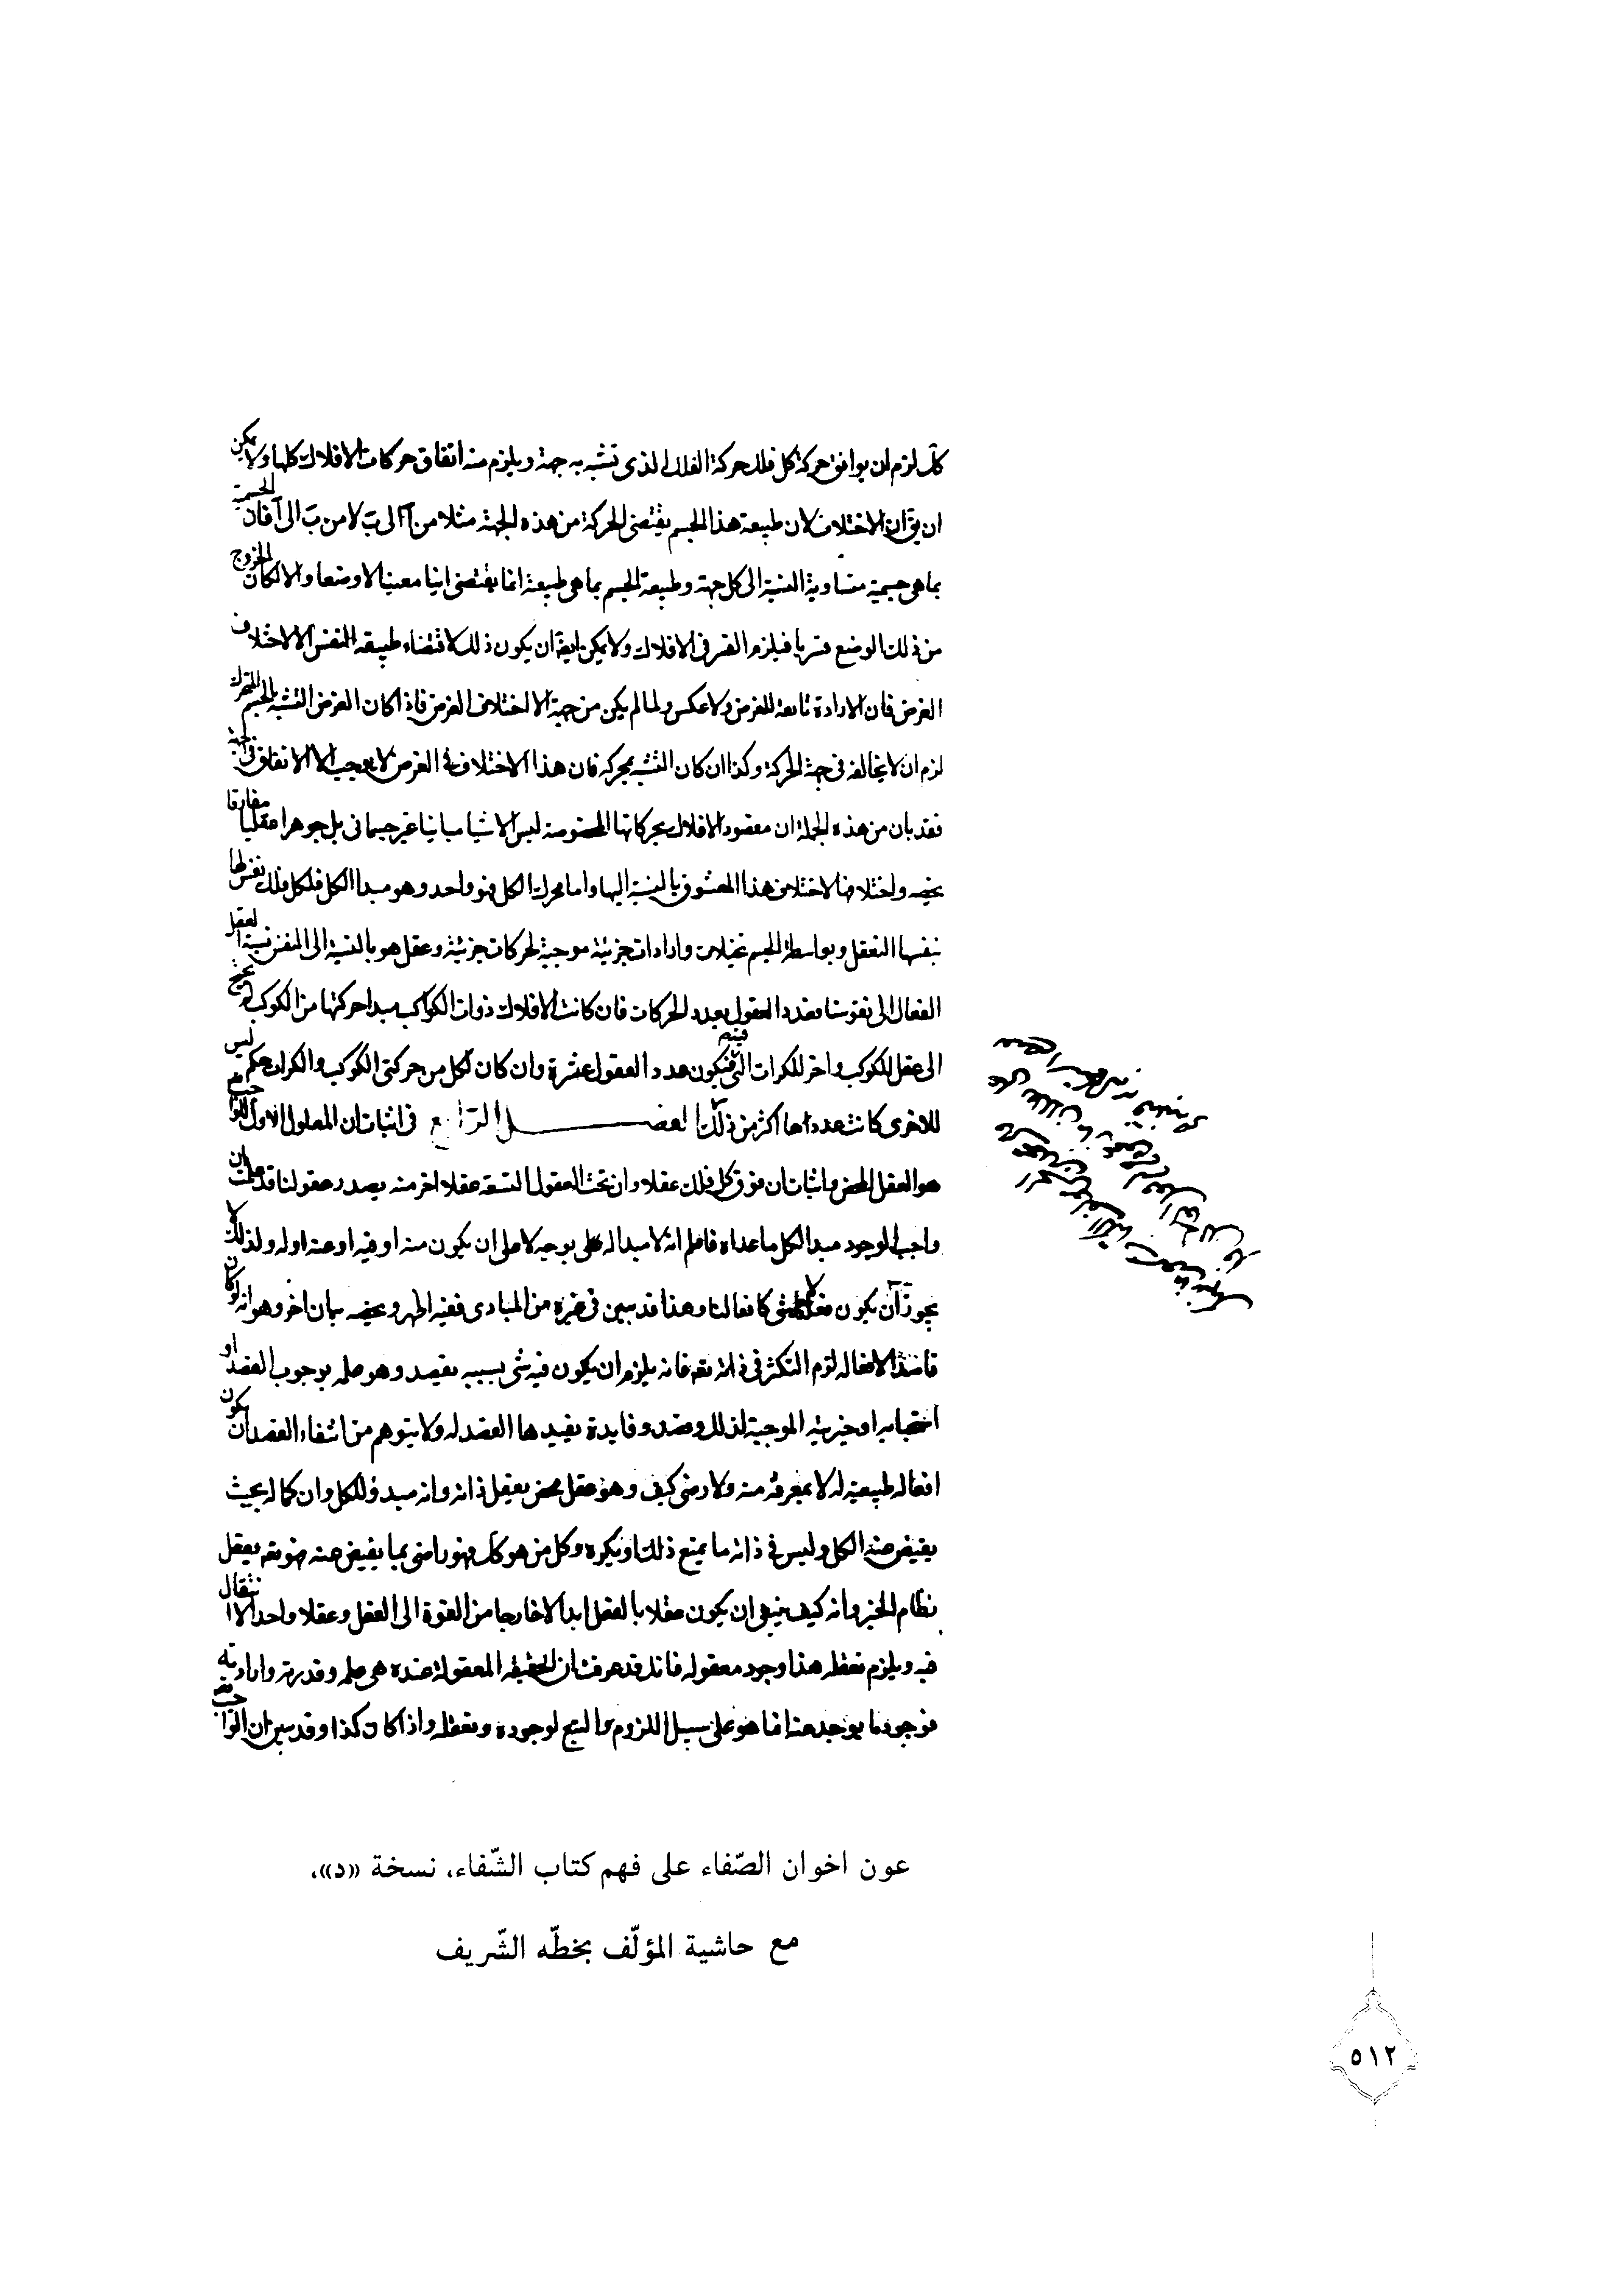 كك لزم ان يوافق حركة كل فلك حركة الفلك الذى تشبه به جهة ويلزم منه اتفاق حركات الافلاك كلها ولا يمكن
ان يق ان الاختلاف لان طبيعة هذا الجسم يقتضى الحركة من هذه الجهة مثلا من آ الى ب لا من ب الى آ فان الجسمية
بما هى جسمية متساوية النسبة الى كل جهة وطبيعة الجسم بما هى طبيعة انما يقتضى اينا معينا لا وضعا والا لكان الخروج
من ذلك الوضع قسريا فيلزم القسر فى الافلاك ولا يمكن ايضا ان يكون ذلك لاقتضاء طبيعة النفس الا لاختلاف
الغرض فان الارادة تابعة للغرض ولا عكس ولما لم يكن من جهة الا اختلاف الغرض فاذا كان الغرض التشبه بالجسم المتحرك
لزم ان لا يخالفه فى جهة الحركة وكذا ان كان التشبه بمحركه فان هذا الاختلاف فى الغرض لا يوجب الا الاتفاق فى الجهة
فقد بان من هذه الجملة ان مقصود الافلاك بحركاتها المخصوصة ليس الا شيئا مباينا غير جسمانى بل جوهرا عقليا مفارقا
يخصه واختلافها لاختلاف هذا المعشوق بالنسبة اليها واما محرك الكل فهو واحد وهو مبدا الكل فلكل فلك نفس لها
بنفسها التعقل وبواسطة الجسم تخيلات وارادات جزئية موجبة لحركات جزئية وعقل هو بالنسبة الى النفس نسبة العقل
الفعال الى نفوسنا فعدد العقول بعدد الحركات فان كانت الافلاك ذوات الكواكب مبدا حركتها من الكوكب لم يحتج
الى عقل للكوكب واخر للكرات التى فيه فيكون عدد العقول عشرة وان كان لكل من حركتى الكوكب والكرات حكم ليس
للاخرى كانت عددها اكثر من ذلك الفصل الرابع فى اثبات ان المعلول الاول للواجب تع
هو العقل المحض واثبات ان فوق كل فلك عقلا وان تحت العقول التسعة عقلا اخر منه يصدر عقولنا قد علمت ان
واجب الوجود مبدا لكل ما عداه فاعلم انه لا مبدا له على بوجه لا على ان يكون منه او فيه او عنه او له ولذلك لا
يجوز ان يكون فعله لشئ كافعالنا وهذا قد سبق فى غيره من المبادى ففيه اظهر ويخصه بيان اخر وهو انه لو كان
قاصدا لافعاله لزم التكثر فى ذاته تعه فانه يلزم ان يكون فيه شئ بسببه يقصد وهو علمه بوجوب القصد او
استحبابه او خيريته الموجبة لذلك وقصد وفايدة يفيدها القصد له ولا يتوهم من انتفاء القصد ان يكون
افعاله طبيعية له لا بمعرفة منه ولا رضى كيف وهو عقل محض يعقل ذاته وانه مبدؤ للكل وان كماله بحيث
يفيض عنه الكل وليس فى ذاته ما يمنع ذلك او يكره وكل من هو كك فهو راضى بما يفيض عنه فهو تعه يعقل
نظام الخير وانه كيف ينبغى ان يكون عقلا بالفعل ابدا لا خارجا من القوة الى الفعل وعقلا واحدا لا انتقال
فيه ويلزم تعقله هذا وجود معقوله فانك قد عرفت ان الحقيقة المعقولة عنده هى علمه وقدرته وارادته
فوجود ما يوجد عنه انما هو على سبيل اللزوم والتبع لوجوده وتعقله واذا كان كذا وقد سبق ان الواجب تعه
عون اخوان الصّفاء على فهم كتاب الشّفاء، نسخة «د»،
مع حاشية المؤلّف بخطّه الشّريف
٥١٢